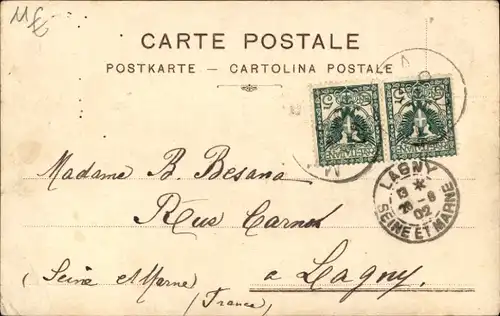 CARTE POSTALE
POSTKARTE — CARTOLINA POSTALE
LAGNY
SEINE ET MARNE
02
Madame B. Besana
Rue Carnot
a Lagny,
(Seine et Marne)
(France)